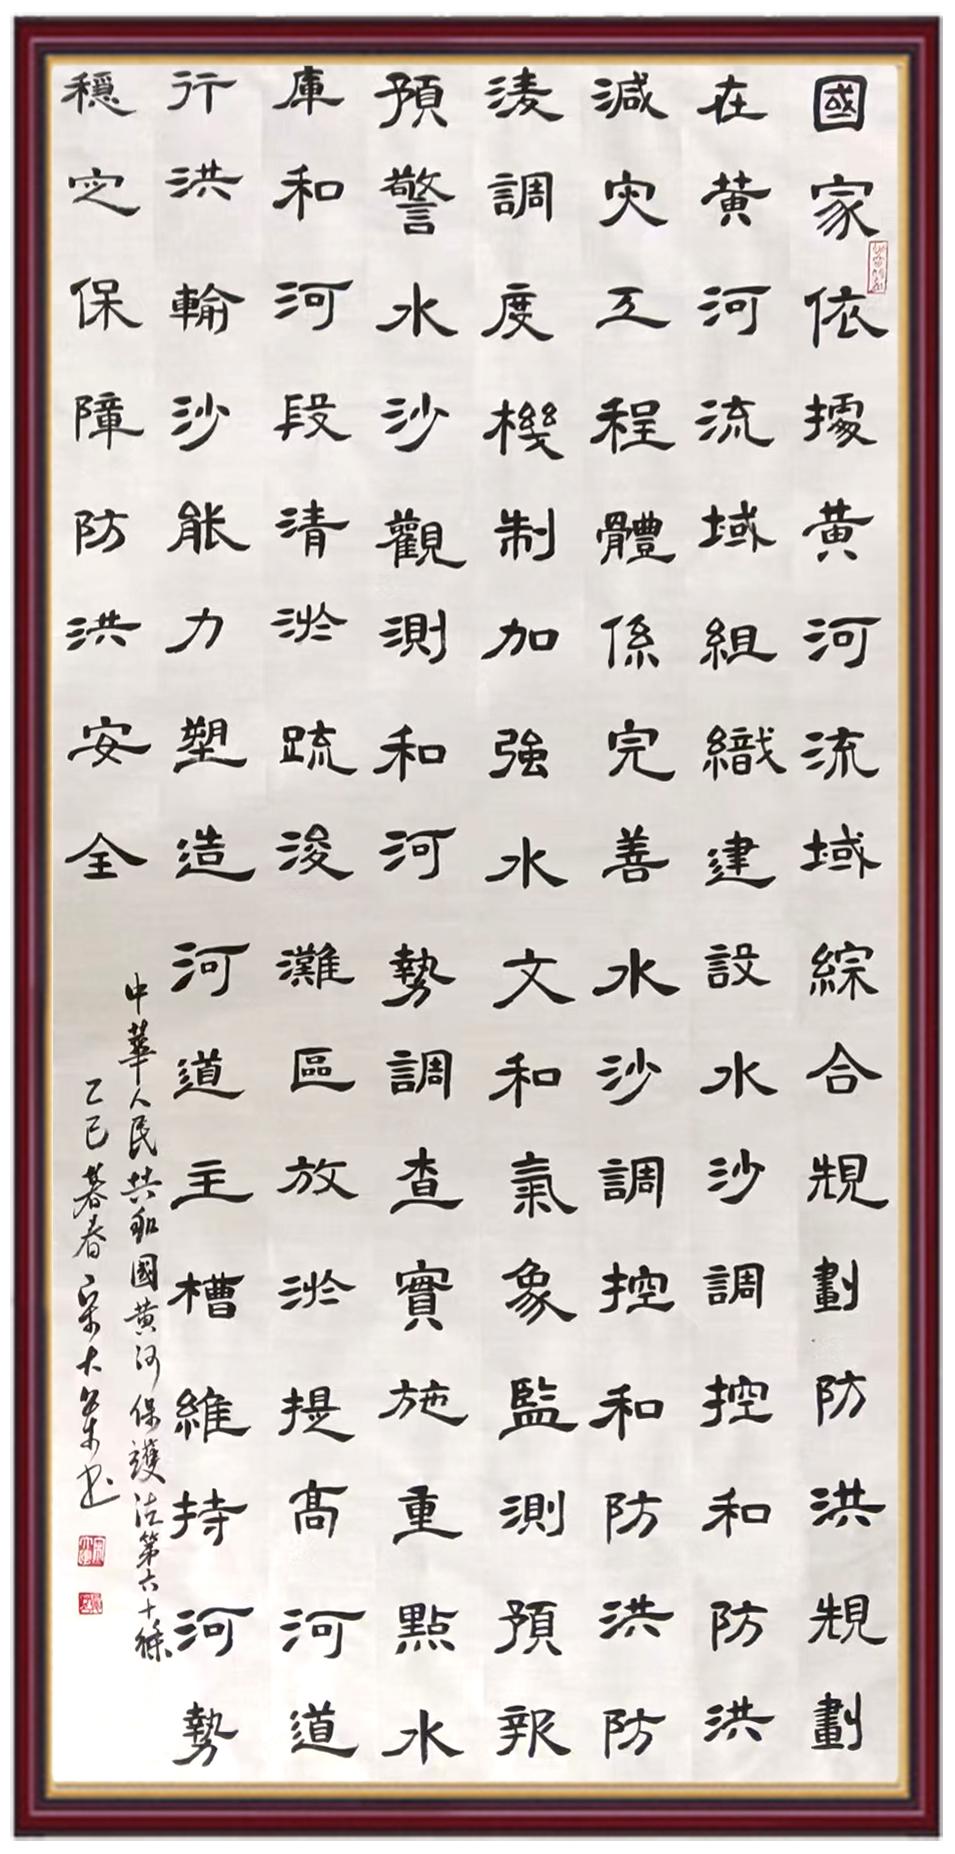 國家依據黄河流域綜合規劃防洪規劃
在黄河流域組織建設水沙調控和防洪
減灾工程體係完善水沙調控和防洪防
淩調度機制加強水文和氣象監測預報
預警水沙觀測和河勢調查實施重點水
庫和河段清淤疏浚灘區放淤提高河道
行洪輸沙能力塑造河道主槽維持河勢
穩定保障防洪安全
中華人民共和國黄河保護法第六十條
乙巳暮春宋大